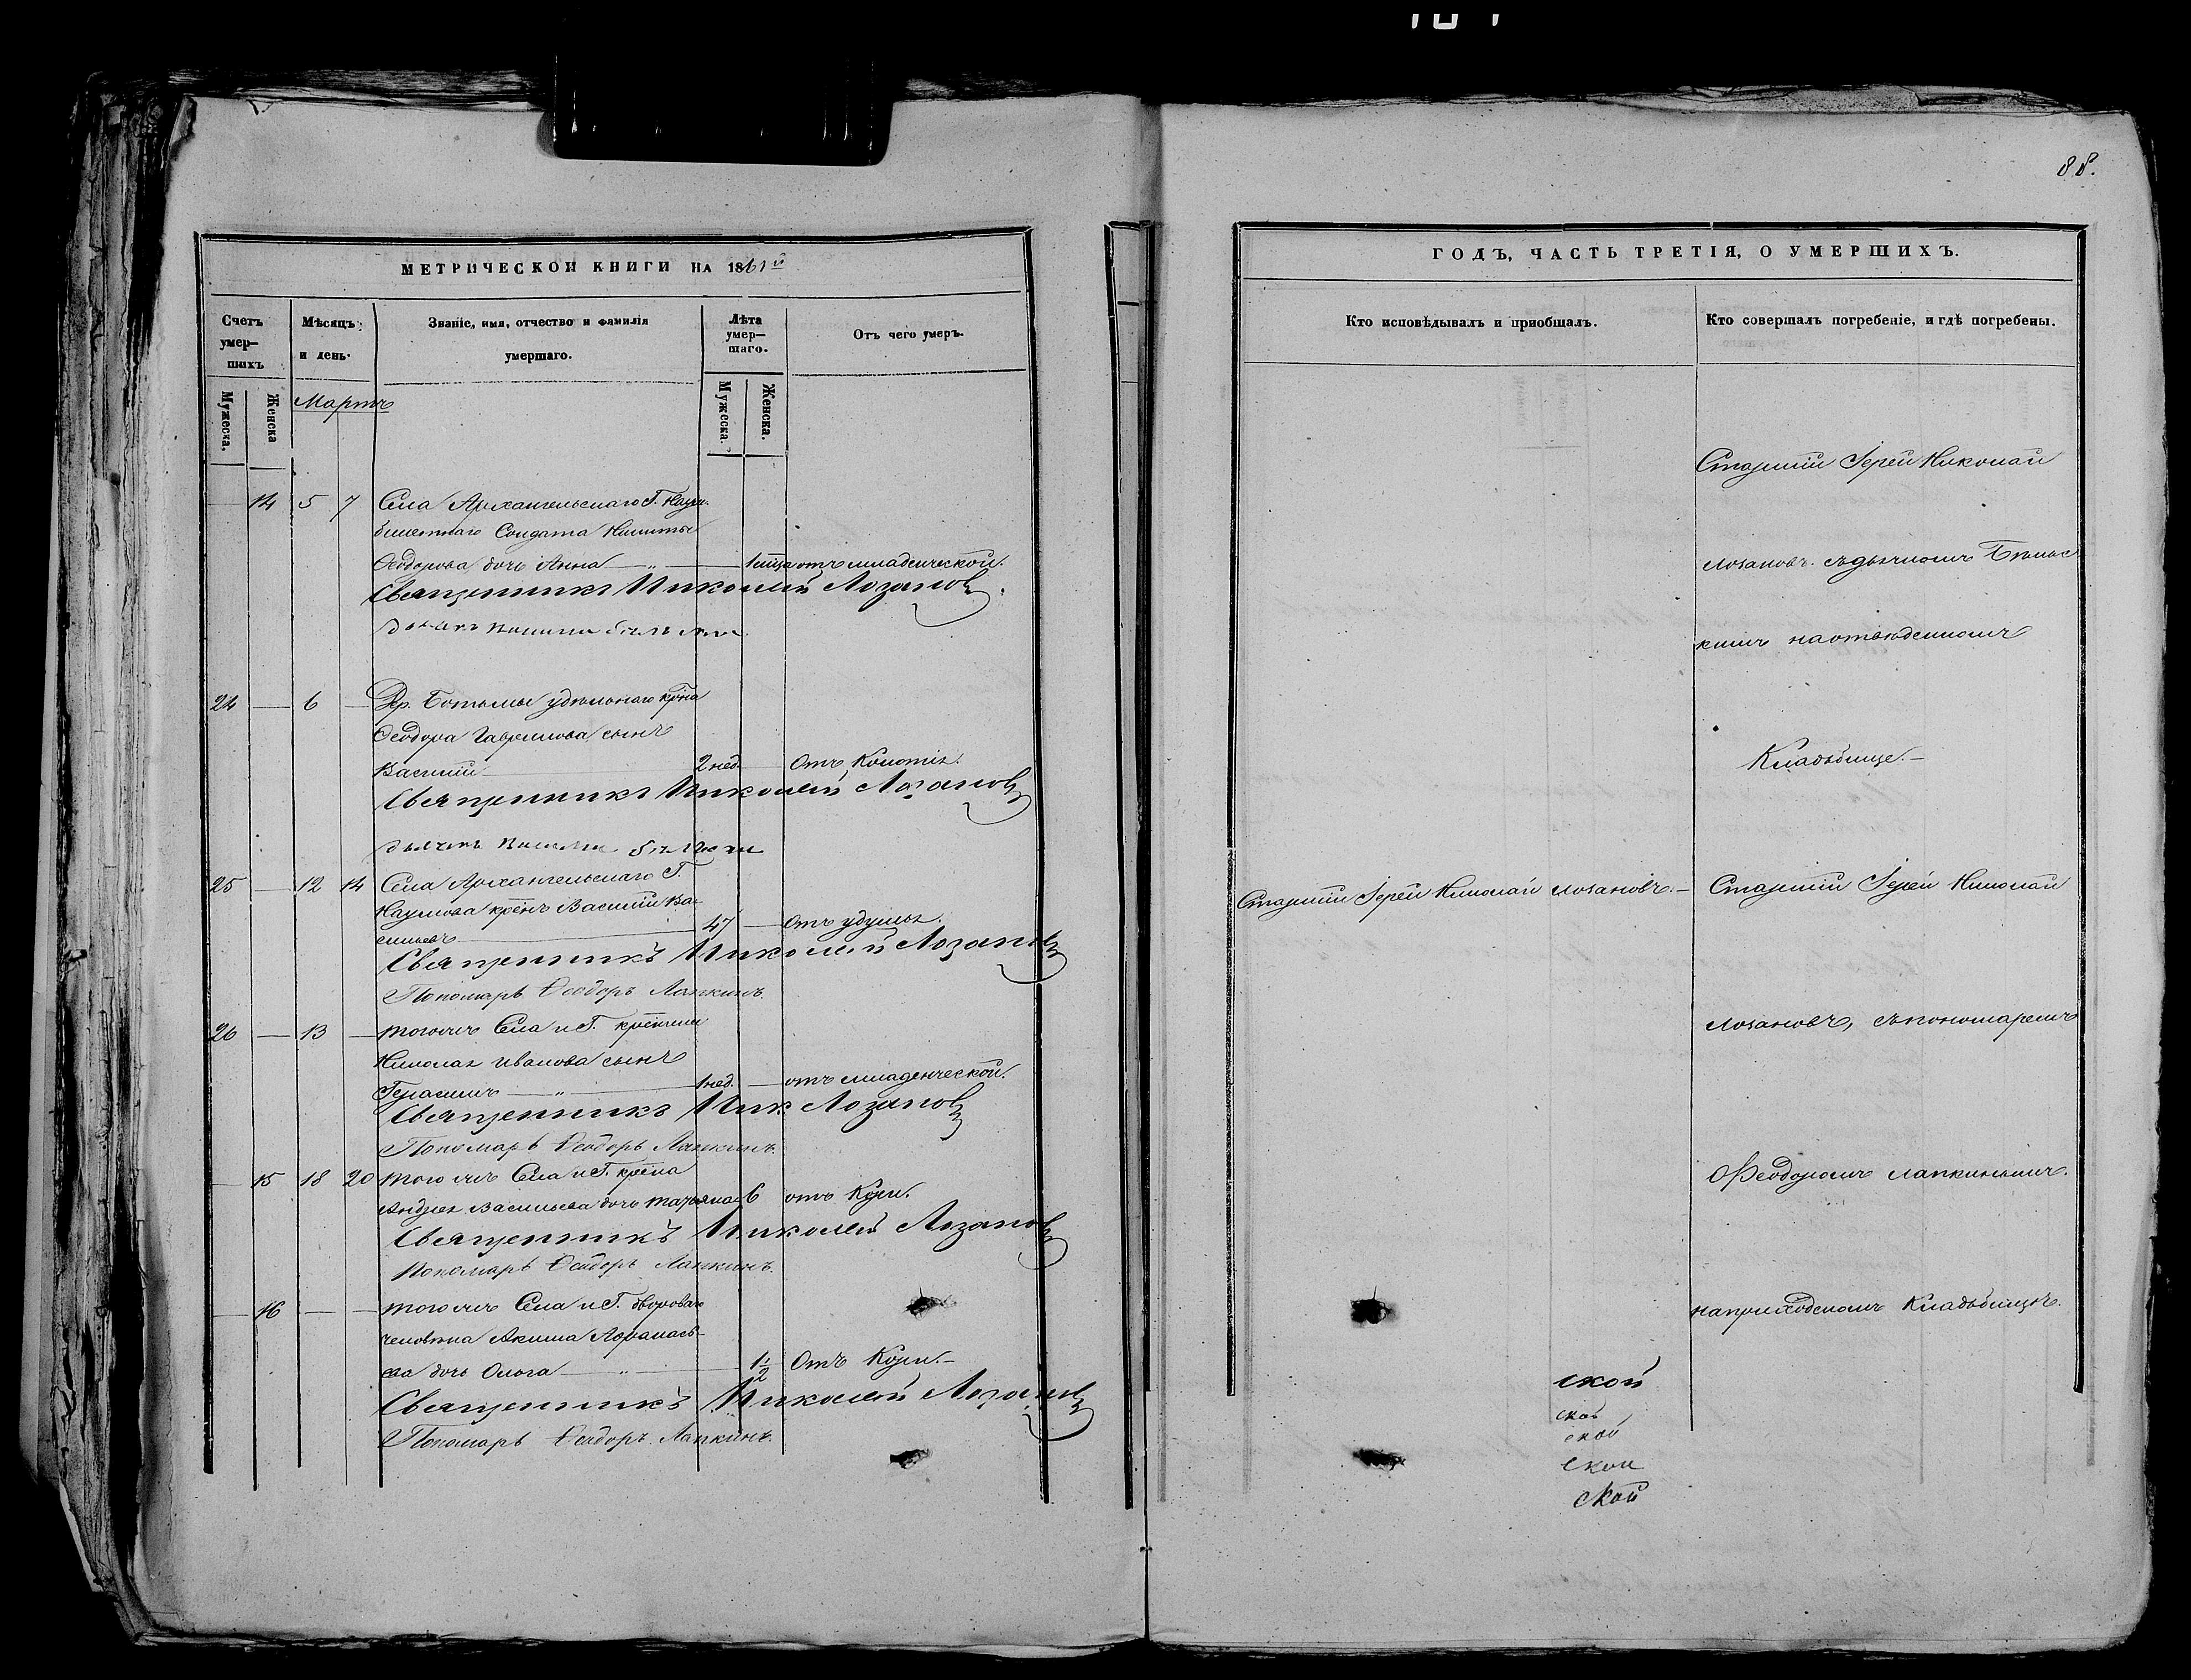 88.
МЕТРИЧЕСКОЙ КНИГИ НА 1861й
Счетъ умер-шихъ
Мѣсяцъ и день.
Званіе, имя, отчество и фамилія умершаго.
Лѣта умер-шаго.
Отъ чего умеръ.
Мужеска.
Женска
Мужеска.
Женска.
Мартъ
14 5 7 Села Архангельскаго Г. Наум.
билетнаго Солдата Никиты
Ѳеодорова дочь Анна 1 отъ младенческой.
Священникъ Николай Лозановъ
24 6 Дер. Ботьмы удѣльнаго крѣна
Ѳеодора Гаврилова сынъ
Василій 2 нед. Отъ Колотья.
Священникъ Николай Лозановъ
25 12 14 Села Архангельскаго Г.
Наумова крѣнъ Василій Ва-
сильевъ 47 Отъ удушья.
Священникъ Николай Лозановъ
Пономарь Ѳеодоръ Лапкинъ.
26 13 тогожъ Села и Г. крѣнина
Николая Иванова сынъ
Герасимъ 1 нед. отъ младенческой.
Священникъ Ник. Лозановъ
Пономарь Ѳеодоръ Лапкинъ.
15 18 20 тогожъ Села и Г. крѣна
Андрея Васильева дочь Татьяна 6 отъ Кори.
Священникъ Николай Лозановъ
Пономарь Ѳеодоръ Лапкинъ.
16 тогожъ Села и Г. двороваго
человѣка Акима Аѳанась-
ева дочь Ольга 1 1/2 Отъ Кори.
Священникъ Николай Лозановъ
Пономарь Ѳеодоръ Лапкинъ.
ГОДЪ, ЧАСТЬ ТРЕТІЯ, О УМЕРШИХЪ.
Кто исповѣдывалъ и пріобщалъ.
Кто совершалъ погребеніе, и гдѣ погребены.
Старшій Іерей Николай
Лозановъ. съ дьячкомъ Бѣльс
кимъ на отведенномъ
Кладьбище.
Старшій Іерей Николай Лозановъ.
Старшій Іерей Николай
Лозановъ, съ пономаремъ
Ѳеодоромъ Лапкинымъ.
на приходскомъ Кладьбищѣ.
ской
ской
ской
ской
ской